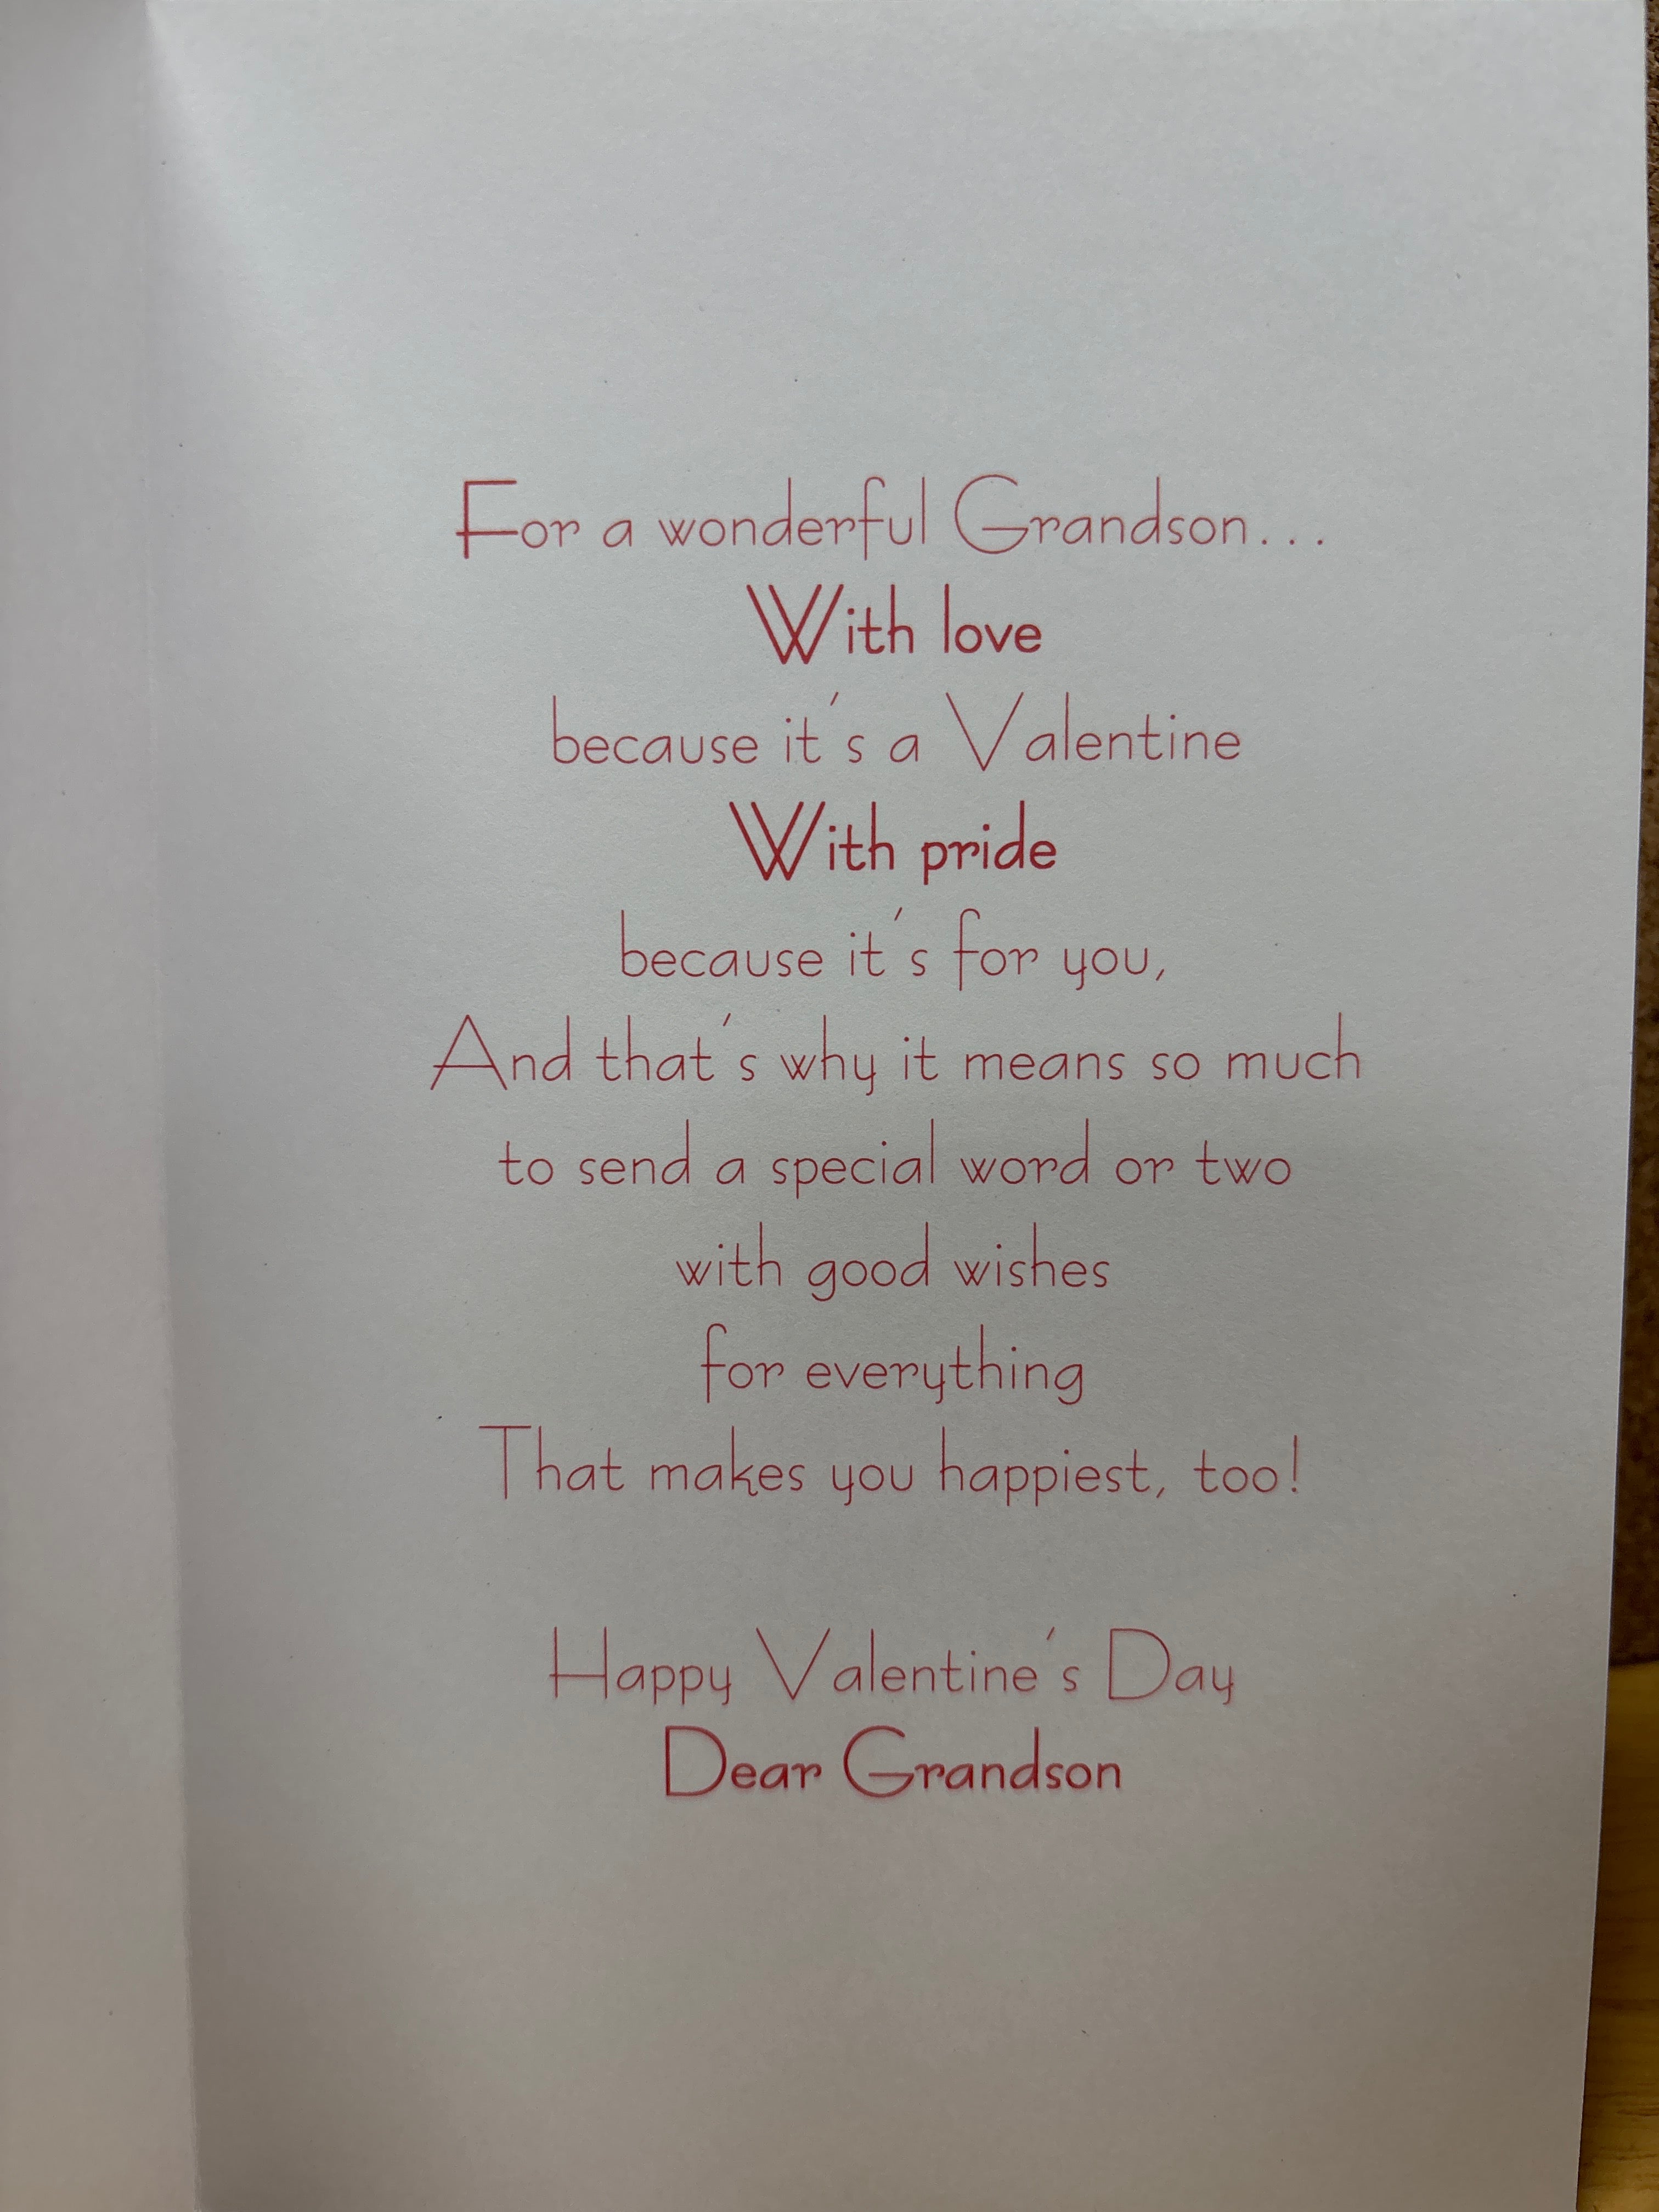 For a wonderful Grandson...
With love
because it's a Valentine
With pride
because it's for you,
And that's why it means so much
to send a special word or two
with good wishes
for everything
That makes you happiest, too!
Happy Valentine's Day
Dear Grandson